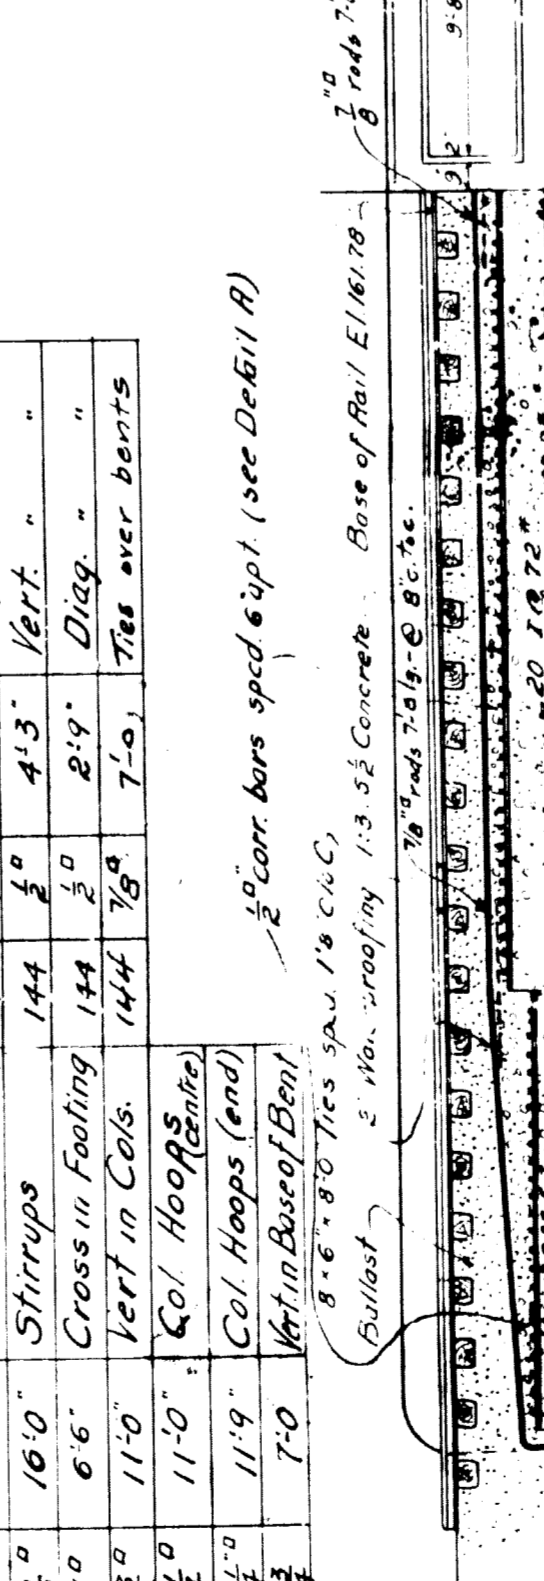 16'-0" Stirrups 144 ½"□ 4'-3" Vert. "  "
6'-6" Cross in Footing 144 ½"□ 2'-9" Diag. "  "
11'-0" Vert in Cols. 144 7/8"□ 7'-0" Ties over bents
11'-0" Col. Hoops (centre)
11'-9" Col. Hoops (end)
7'-0 Vert. in Base of Bent
½"□ corr. bars spcd. 6" apt. (see Detail A)
8"×6"×8'-0 Ties spcd. 1'8" C to C
Ballast
Waterproofing 1:3:5½ Concrete
Base of Rail El. 161.78
7/8"□ rods 7'-0 lg. @ 8" c. to c.
7/8"□ rods
20" I @ 72#
9'-8
3' 2"